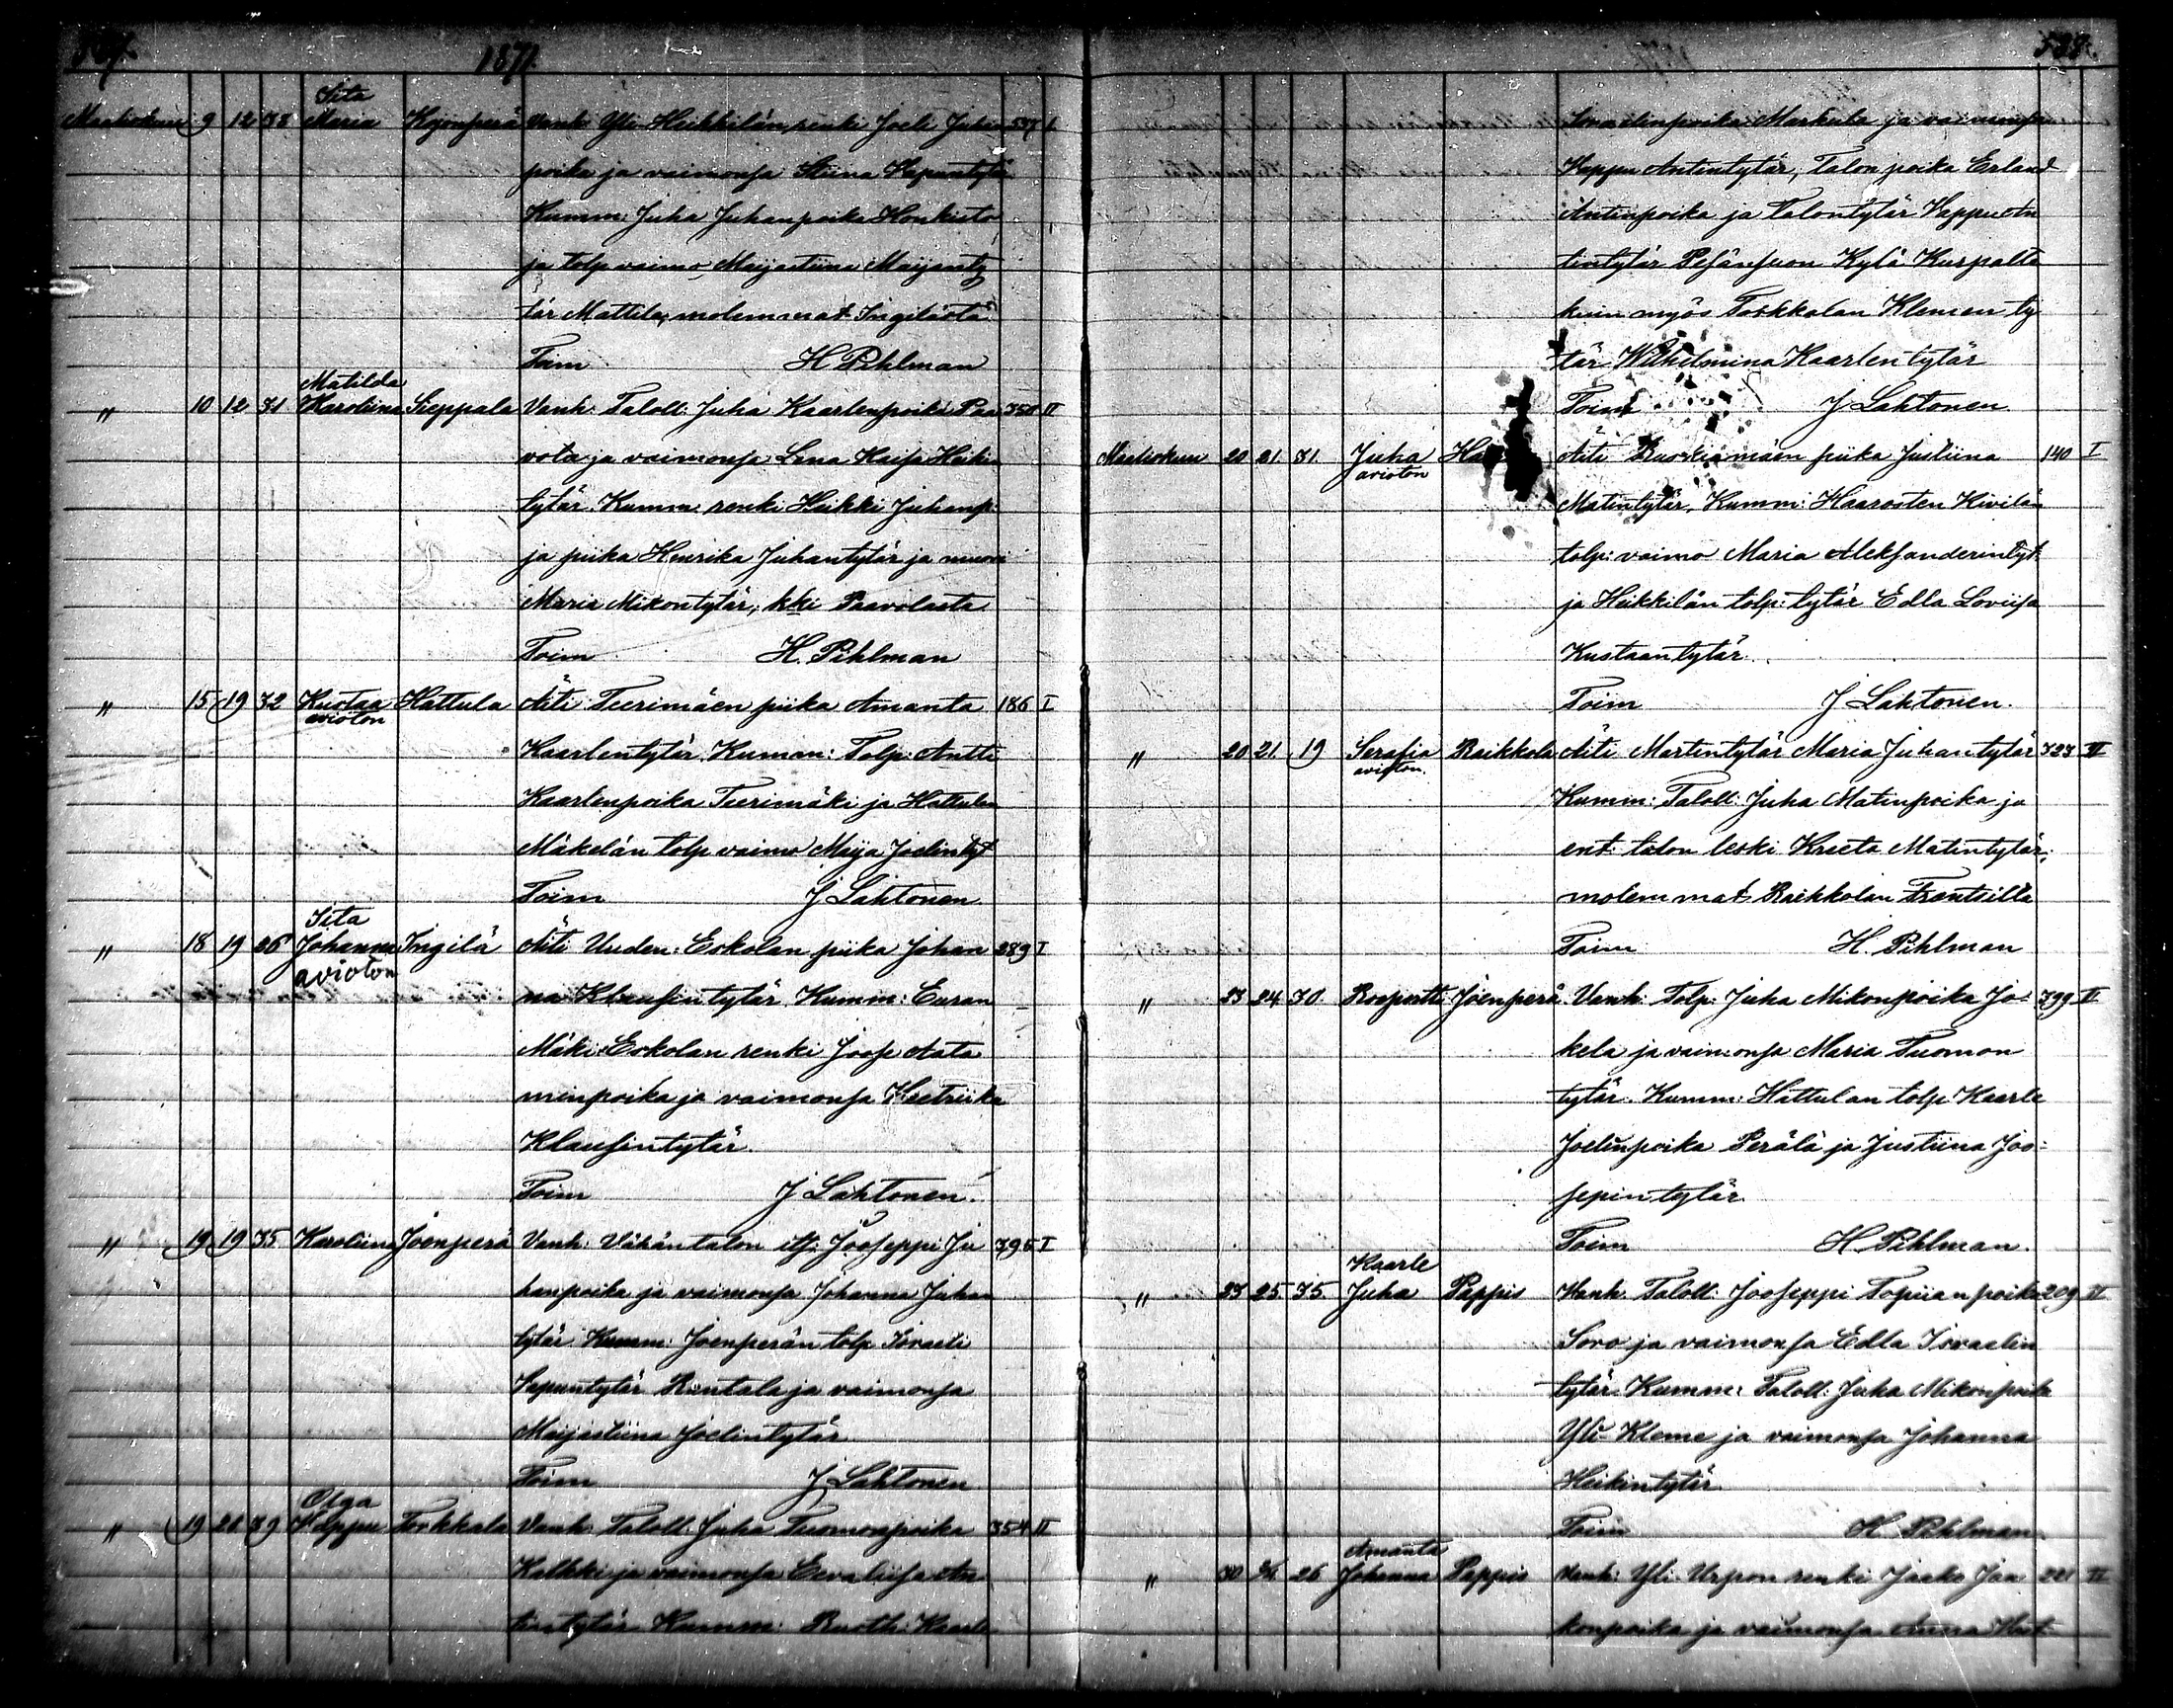 1871.
Sita
Maaliskuu 9 12 38 Maria Kojonperä Vanh: Yli-Heikkilän renki Joeli Juhan 537 I
poika ja vaimonsa Stiina Heprintytär
Kumm: Juha Juhanpoika Honkisto
ja tolp vaimo Maijastiina Maijanty
tär Mattila, molemmat Ingilästä
Toim H Pihlman
Matilda
" 10 12 31 Karoliina Seppälä Vanh: Taloll: Juha Kaarlenpoika Paa 350 II
vola ja vaimonsa Lena Kaisa Heikin
tytär. Kumm: renki Heikki Juhanp:
ja piika Henrika Juhantytär ja muori
Maria Mikontytär, kki Paavolasta
Toim H. Pihlman
" 15 19 32 Kustaa Hattula Äiti Teerimäen piika Amanta 186 I
avioton
Kaarlentytär. Kumm: Tolp: Antti
Kaarlenpoika Teerimäki ja Hattulan
Mäkelän tolp vaimo Maija Joelin tyt
Toim J Lahtonen
Sita
" 18 19 26 Johanna Ingilä Äiti Uuden: Eskolan piika Johan 289 I
avioton
na Klausintytär. Kumm: Euran
Mäki-Eskolan renki Joose Aata
minpoika ja vaimonsa Keetriika
Klausintytär.
Toim J Lahtonen.
" 19 19 35 Karoliina Joenperä Vanh: Vähäntalon its: Jooseppi Ju 395 I
hanpoika ja vaimonsa Johanna Juhan
tytär. Kumm: Joenperän tolp Israeli
Sapuntytär Rintala ja vaimonsa
Maijastiina Joelintytär
Toim J Lahtonen
Olga
" 19 20 39 Vappu Torkkala Vanh: Taloll: Juha Tuomonpoika 354 II
Kalkki ja vaimonsa Eevaliisa An
tintytär Kumm: Ruoth: Kaarle
538.
poika Markula ja vaimonsa
Vappu Antintytär, Talon poika Erland
Antinpoika ja Talontytär Vappu An
tintytär Pesänsuon Kylä Kurpalta
kuin myös Torkkolan Klemen ty
tär Wilhelmina Kaarlentytär
Toim J Lahtonen
Maaliskuu 20 21 31 Juha Äiti Ruoskiamäen piika Justiina 140 I
avioton
Matintytär. Kumm: Haaroisten Kivilän
tolp: vaimo Maria Aleksanderintyt:
ja Heikkilän tolp: tytär Edla Loviisa
Kustaantytär.
Toim J Lahtonen.
" 20 21 19 Serafia Raikkola Äiti Martintytär Maria Juhantytär 323 II
avioton.
Kumm: Taloll: Juha Matinpoika ja
ent: talon leski Kreeta Matintytär,
molemmat Raikkolan Frantsilla
Toim H. Pihlman
" 23 24 30 Roopertti Joenperä Vanh: Tolp: Juha Mikonpoika Jo- 399 II
kela ja vaimonsa Maria Tuomon
tytär. Kumm: Hattulan tolp Kaarle
Joelinpoika Perälä ja Justiina Joo-
sepintytär
Toim H. Pihlman.
Kaarle
" 23 25 35 Juha Pappis Vanh: Taloll: Jooseppi Topiianpoika 209 II
Soro ja vaimonsa Edla Israelin
tytär. Kumm: Taloll: Juha Mikonpoika
Yli-Kleme ja vaimonsa Johanna
Heikintytär
Toim H. Pihlman
Amanta
" 30 26 Johanna Pappis Vanh: Yli-Urpon renki Jaako Jaa 221 II
konpoika ja vaimonsa Anna